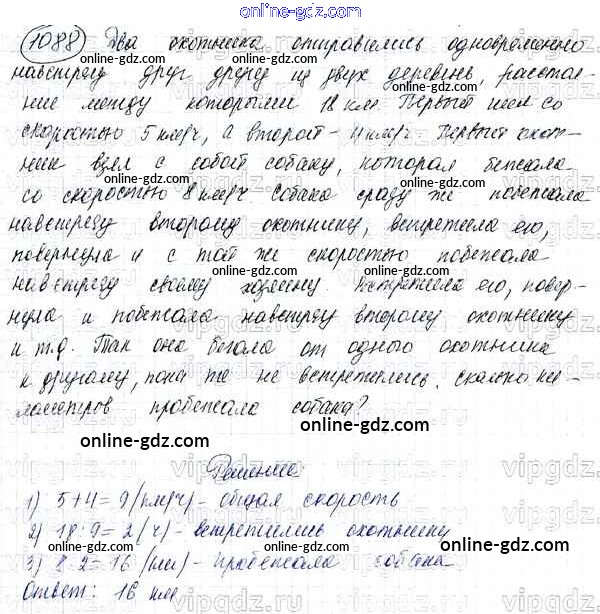 online-gdz.com
1088 Два охотника отправились одновременно
навстречу друг другу из двух деревень, расстоя-
ние между которыми 18 км. Первый шел со
скоростью 5 км/ч, а второй - 4 км/ч. Первый охот-
ник взял с собой собаку, которая бежала
со скоростью 8 км/ч. Собака сразу же побежала
навстречу второму охотнику, встретила его,
повернула и с той же скоростью побежала
навстречу своему хозяину. Встретила его, повер-
нула и побежала навстречу второму охотнику
и т.д. Так она бегала от одного охотника
к другому, пока те не встретились. Сколько ки-
лометров пробежала собака?
online-gdz.com
Решение
1) 5+4=9 (км/ч) - общая скорость
2) 18:9=2 (ч) - встретились охотники
3) 8·2=16 (км) - пробежала собака
Ответ: 16 км.